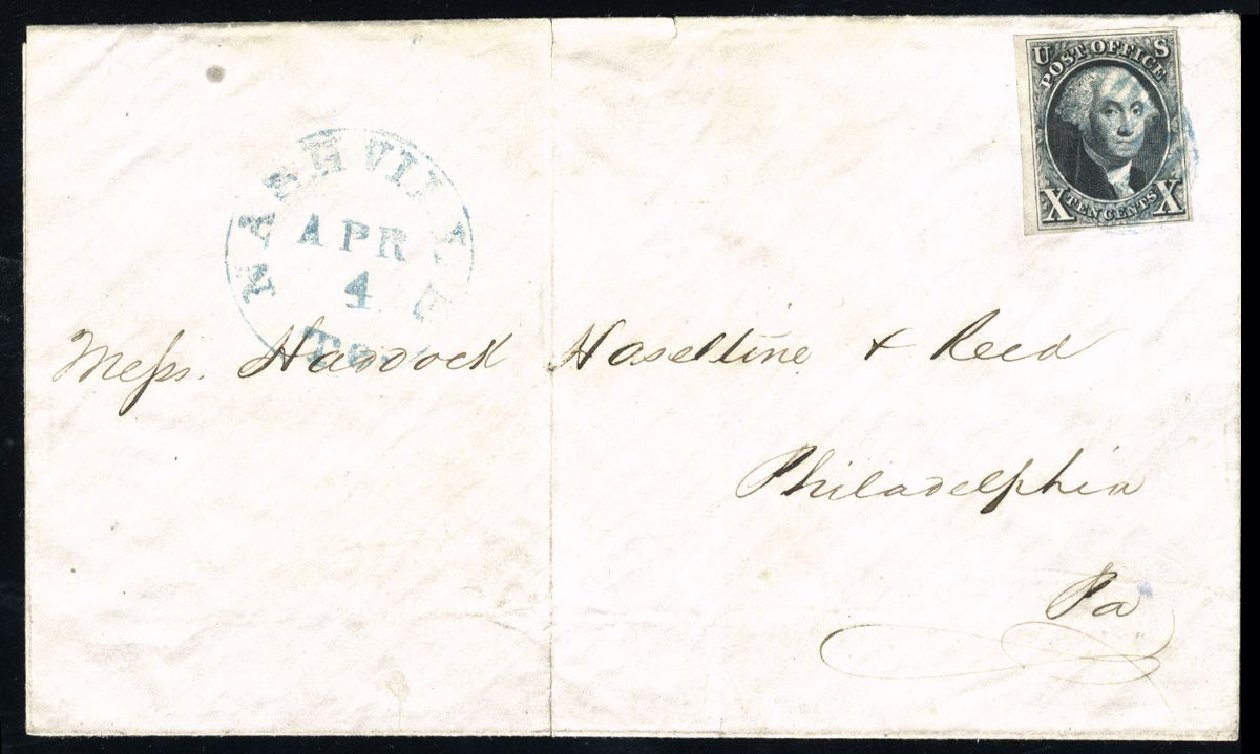 U S
POST OFFICE
X TEN CENTS X
NASHVILLE
APR
4
Ten
Mess. Haddock Haseltine & Reed
Philadelphia
Pa